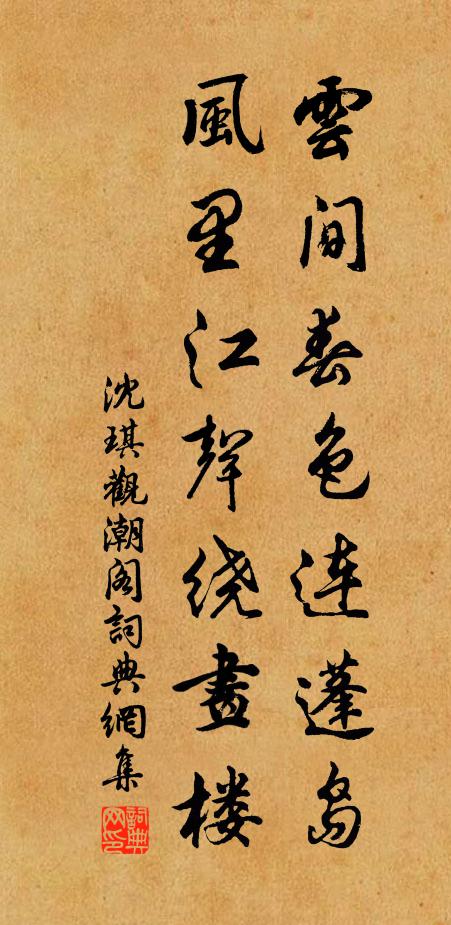 雲間春色連蓬島
風里江聲绕畫楼
沈琪觀潮阁詞典網集
詞典网印